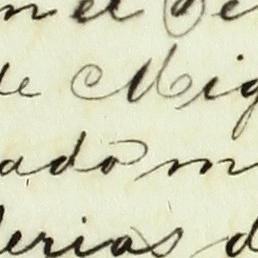 de Mig
ado m
erias d